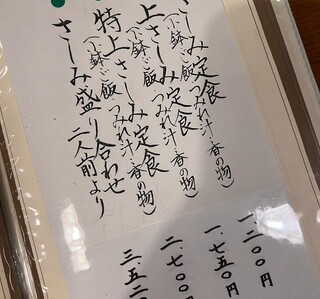 さしみ定食
(小鉢・ご飯 つみれ汁・香の物)
上さしみ定食
(小鉢・ご飯 つみれ汁・香の物)
特上さしみ定食
(小鉢・ご飯 つみれ汁・香の物)
さしみ盛り合わせ
二人前より
一.二〇〇円
一.七五〇円
二.七〇〇
三.五二